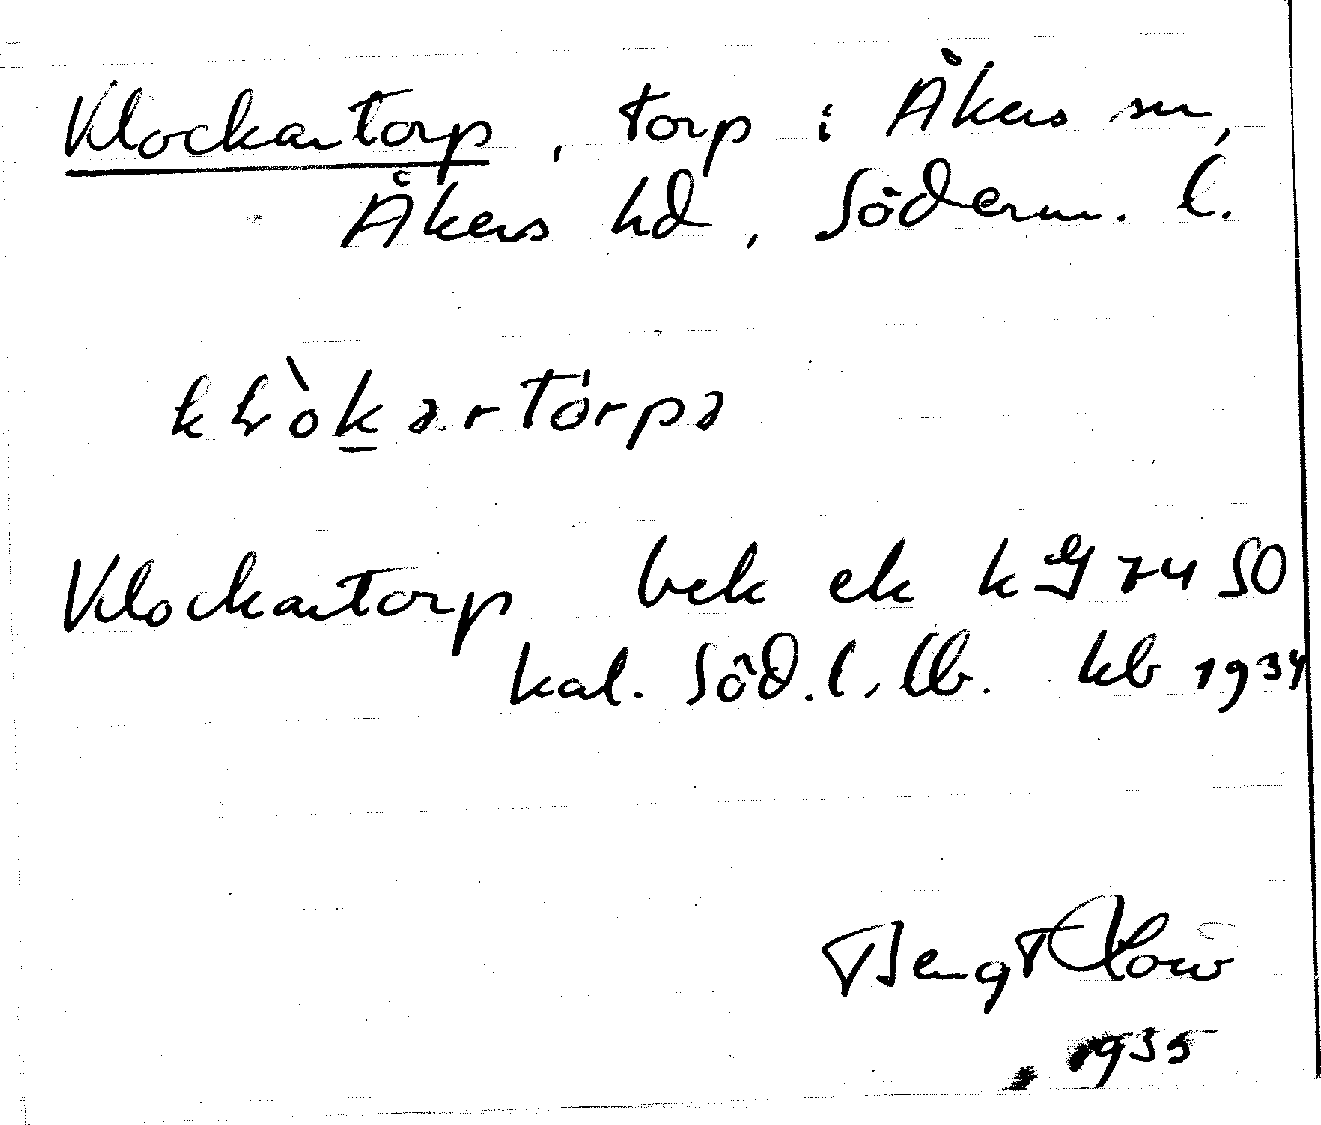 Klockartorp, torp i Åkers sn,
Åkers hd, Söderm. l.
Klockartorp bek ek kG 74 SO
kal. Söd. l. lb. kb 1934
Bengt
1935